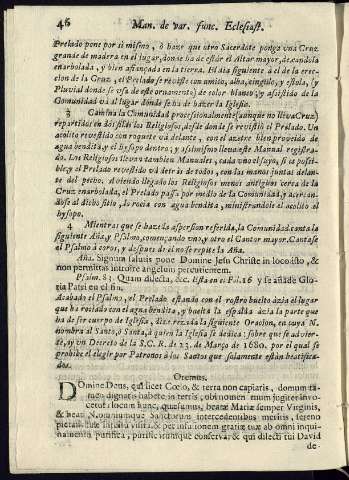 46 Man. de var. func. Eclesiast.
Prelado pone por sì mismo, ò haze que otro Sacerdote ponga vna Cruz
grande de madera en el lugar, donde ha de estàr el Altar mayor, dexandola
enarbolada, y bien afiançada en la tierra. El dia siguiente à el de la erec-
cion de la Cruz, el Prelado se reviste con amito, alba, cingulo, y estola, (y
Pluvial donde se vsa de este ornamento) de color blanco, y assistido de la
Comunidad và al lugar donde se ha de hazer la Iglesia.
3 Camina la Comunidad processionalmente (aunque no lleva Cruz)
repartidos en dos filas los Religiosos, desde donde se revistiò el Prelado. Un
acolito revestido con roquete và delante, con el azetre bien proveìdo de
agua bendita, y el hysopo dentro; y assimismo lleva este Manual registra-
do. Los Religiosos llevan tambien Manuales, cada vno el suyo, si es possi-
ble, y el Prelado revestido và detràs de todos, con las manos juntas delan-
te del pecho. Aviendo llegado los Religiosos menos antiguos cerca de la
Cruz enarbolada, el Prelado passa por medio de la Comunidad, y acercan-
dose al dicho sitio, lo rocia con agua bendita, ministrandole el acolito el
hysopo.
4 Mientras que se haze la aspersion referida, la Comunidad canta la
siguiente Aña, y Psalmo, començando vno, y otro el Cantor mayor. Cantase
el Psalmo à coros, y despues de èl no se repite la Aña.
Aña. Signum salutis pone Domine Jesu Christe in loco isto, &
non permittas introire angelum percutientem.
Psalm. 83. Quam dilecta, &c. Està en el Fol. 16 y se añade Glo-
ria Patri en el fin.
Acabado el Psalmo, el Prelado estando con el rostro buelto àzia el lugar
que ha rociado con el agua bendita, y buelta la espalda àzia la parte que
ha de ser cuerpo de Iglesia, dize rezada la siguiente Oracion, en cuya N.
nombra al Santo, ò Santa, à quien la Iglesia se dedica: sobre que se advier-
te, ay vn Decreto de la S.C.R. de 23. de Março de 1680. por el qual se
prohibe el elegir por Patronos à los Santos que solamente estàn beatifica-
dos.
Oremus.
Domine Deus, qui licet Cœlo, & terra non capiaris, domum ta-
men dignaris habere in terris, ubi nomen tuum jugiter invo-
cetur: locum hunc, quæsumus, beatæ Mariæ semper Virginis,
& beati N. omniumque Sanctorum intercedentibus meritis, sereno
pietatis tuæ intuitu visita, & per infusionem gratiæ tuæ ab omni inqui-
namento purifica, purificatumque conserva; & qui dilecti tui David
de-